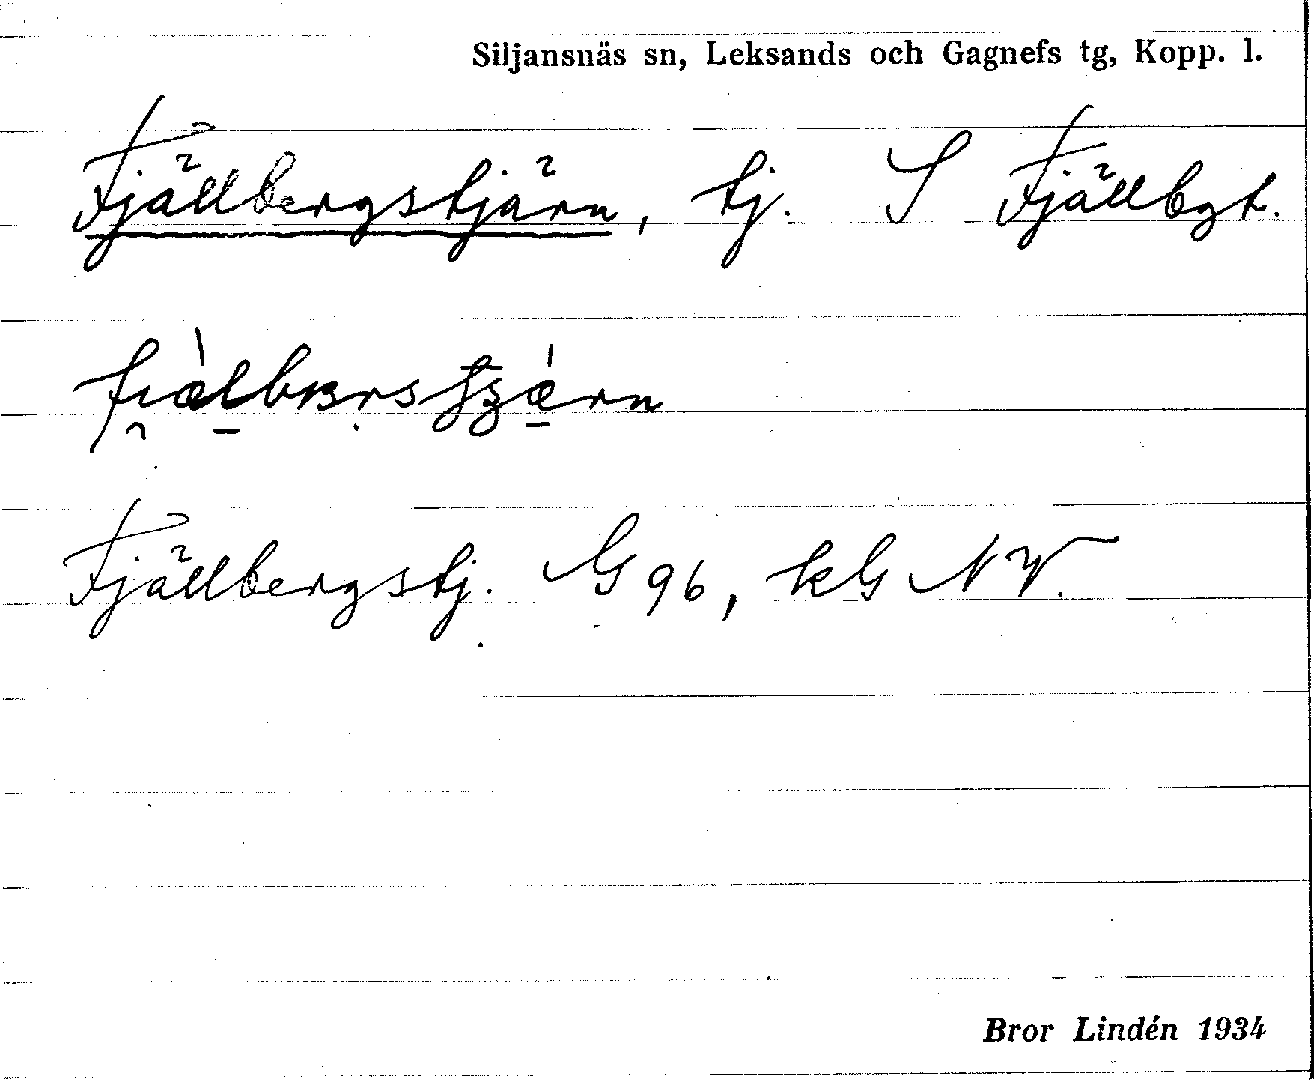 Siljansnäs sn, Leksands och Gagnefs tg, Kopp. l.
Fjällbergstjärn, tj. S Fjällbgt.
Fjällbergstj. G 96, kG NV.
Bror Lindén 1934